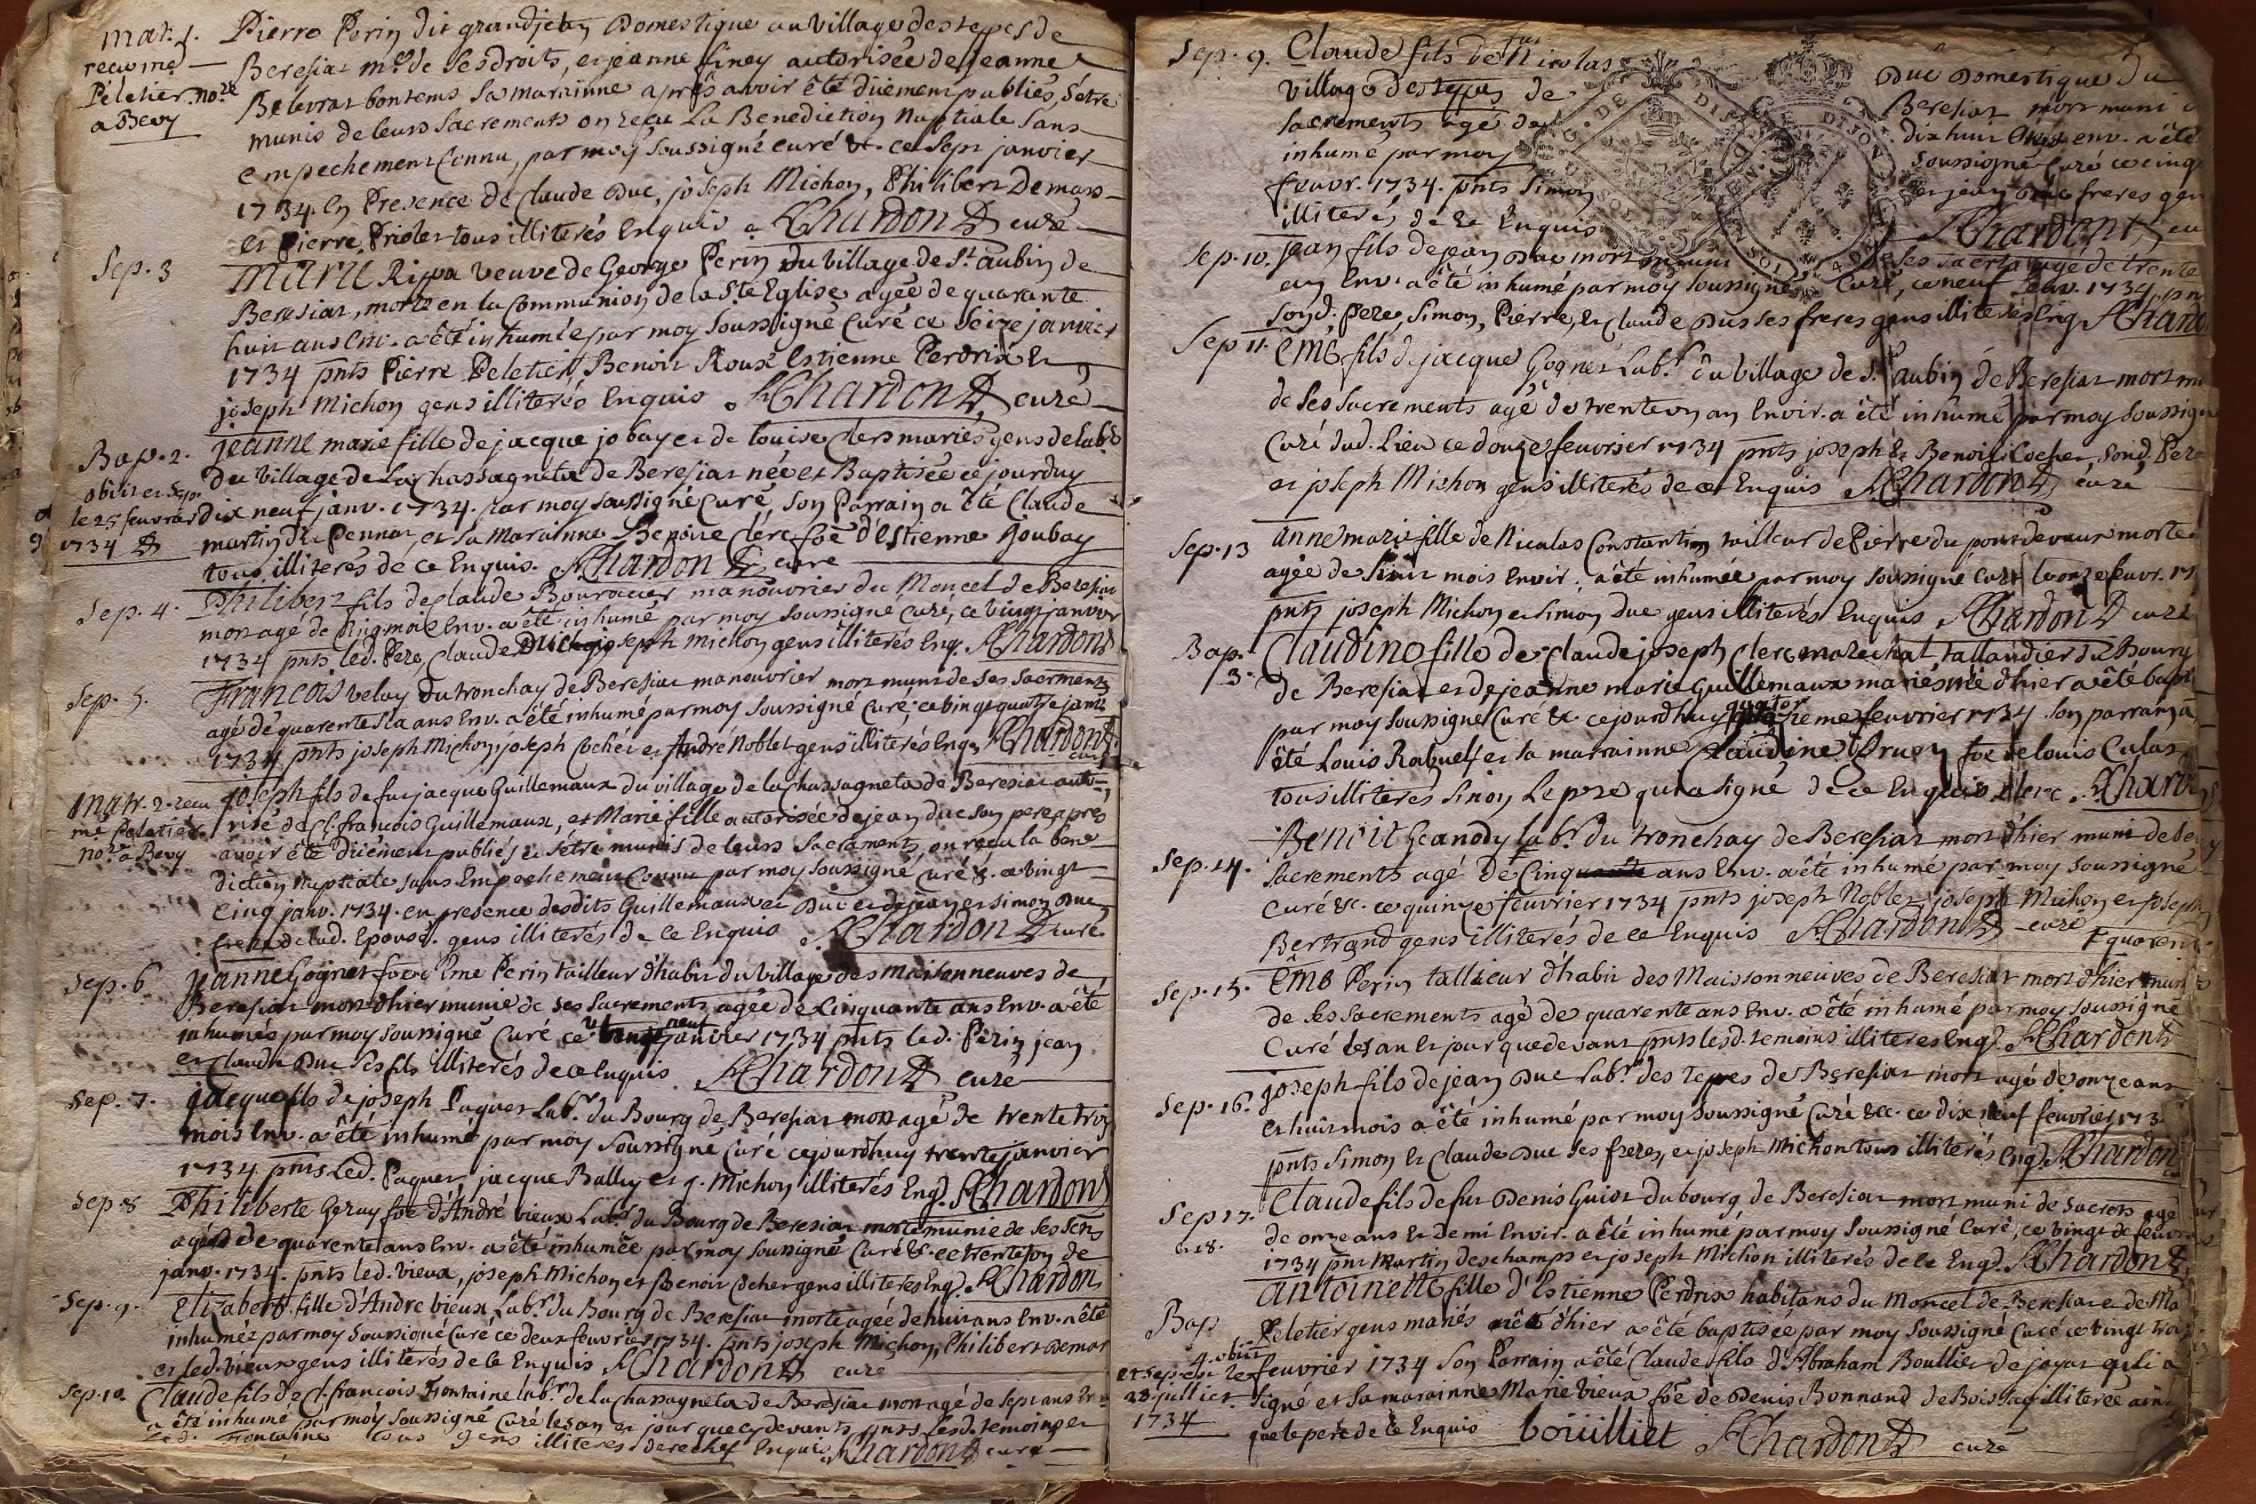 mar. 1.
recu me
Peletier no.re
a Bevy
Pierre Perin dit grandjean Domestique au village des tepes de
Beresiat m.e de ses droits, et jeanne finey autorisée de jeanne
Beletrat bontems sa marainne après avoir êté düement publiés, s'être
munis de leurs sacrements on recu La Benediction Nuptiale sans
empechement Connu, par moy soussigné curé &c. ce sept janvier
1734. En Presence de Claude Duc, joseph Michon, Philibert Demars
et Pierre Priolet tous illiterés Enquis. Chardon curé
Sep. 3
Marie Rippa veuve de George Perin du village de St. aubin de
Beresiat, morte en la Communion de la Ste Eglise agée de quarante
huit ans env. a êté inhumée par moy soussigné Curé ce Seize janvier
1734 pnts Pierre Peletier, Benoit Roux Estienne Perdrix et
joseph Michon gens illiterés Enquis Chardon curé
Bap. 2.
obiit et Sep.
le 25 feuvrier
1734
jeanne marie fille de jacque jobay et de louise Clers mariés gens de lab.r
du village de La Chassagneta de Beresiat née et Baptisée ce jourduy
dix neuf janv. 1734. par moy soussigné Curé, son Parrain a êté Claude
martin de Pennat, et sa Marainne Benoite Clerc foe d'Estienne Joubay
tous illiterés de ce Enquis. Chardon curé
Sep. 4.
Philibert fils de Claude Bouracier manouvrier du Moncel de Beresiat
mort agé de mois Env. a êté inhumé par moy soussigné Curé, ce vingt janvier
1734 pnts led. Pere, Claude joseph Michon gens illiterés Enq. Chardon
Sep. 5.
Francois velay du tronchay de Beresiat manouvrier mort muni de ses sacrements
agé de quarente ans Env. a êté inhumé par moy soussigné Curé, ce vingt quatre janv.
1734 pnts joseph Michon, joseph Cochet et André Noblet gens illiterés Enq. Chardon
curé
matr. 2. recu
me Peletier
no.re a Bevy
joseph fils de fut jacque Guillemaux du village de la Chassagneta de Beresiat auto-
risé de Cl. francois Guillemaux, et Marie fille autorisée de jean duc son pere apres
avoir êté düement publiés et s'être munis de leurs Sacrements on reçu la bene-
diction Nuptiale sans Empechement Connu par moy soussigné Curé &. ce vingt
cinq janv. 1734. en presence desdits Guillemaux et Duc et de jean et simon Duc
freres de lad. Epouse. gens illiterés de ce Enquis Chardon curé
Sep. 6
jeanne Gognet foe d'Eme Perin tailleur d'habit du village des Maisonneuves de
Beresiat mort d'hier munie de ses Sacrements agée de Cinquante ans Env. a êté
inhumée par moy soussigné Curé ce vingt neuf janvier 1734 pnts led. Perin jean
et Claude Duc ses fils illiterés de ce Enquis Chardon curé
Sep. 7.
jacque fils de joseph Paquet Lab.r du Bourg de Beresiat mort agé de trente trois
mois Env. a êté inhumé par moy Soussigné Curé cejourdhuy trente janvier
1734 pnts Led. Paquet, jacque Balley et j. Michon illiterés Enq. Chardon
Sep 8
Philiberte Geray foe d'André vieux Lab.r du Bourg de Beresiat morte munie de ses scrts
agée de quarente ans Env. a êté inhumée par moy soussigné Curé &. ce trente un de
janv. 1734. pnts led. vieux, joseph Michon et Benoit Cochet gens illiterés Enq. Chardon
Sep. 9.
Elizabeth fille d'Andre vieux Lab.r du Bourg de Beresiat morte agée de huit ans Env. a êté
inhumée par moy soussigné Curé ce deux feuvrier 1734. pnts joseph Michon, Philibert Demar
et led. vieux gens illiterés de ce Enquis Chardon curé
Sep. 10
Claude fils de Cl. francois Fontaine lab.r de la Chassagneta de Beresiat mort agé de Sept ans Env.
a êté inhumé par moy soussigné Curé les an et jour que cy devants pnts lesd. temoins et
led. Fontaine tous gens illiterés derechef Enquis Chardon curé
Sep. 9.
Claude fils de fut Nicolas Duc Domestique du
village des tepes de Beresiat mort muni
sacrements agé de dix huit ans env. a êté
inhumé par moy Soussigné Curé ce cinq
feuvr. 1734. pnts Simon et jean Duc freres gens
illiterés de ce Enquis Chardon cu
G. DE DIJON
DIJON
Sep. 10.
jean fils de jean Duc mort muni de ses sacrts agé de trente
an Env. a êté inhumé par moy soussigné Curé, ce neuf feuv. 1734 pn
Sond. Pere, Simon, Pierre, et Claude Duc ses freres gens illiterés Enq. Chard
Sep 11.
Emé fils de jacque Gognet Lab.r du village de St. aubin de Beresiat mort mu
de ses sacrements agé de trente un an Envir. a êté inhumé par moy soussigné
Curé dud. Lieu ce douze feuvrier 1734 pnts joseph et Benoit Cochet, sond. Pere
et joseph Michon gens illiterés de ce Enquis Chardon curé
Sep. 13
anne marie fille de Nicolas Constantin tailleur de Pierre du pont de vaux morte
agée de mois Envir. a êté inhumée par moy soussigné curé feuvr. 17
pnts joseph Michon et simon Duc gens illiterés Enquis Chardon curé
Bap.
3.
Claudine fille de Claude joseph Clerc marechal tallandier du Bourg
de Beresiat et de jeanne marie Guillemaux mariés née d'hier a êté bapt
par moy soussigné Curé &. cejourdhuy quatorzieme feuvrier 1734 son parrain a
êté Louis Rabuel et sa marrainne Claudine Pruey foe de louis Culas
tous illiterés Sinon Le pere qui a signé de ce Enquis Clerc Chard
Sep. 14.
Benoit Geanody lab.r du tronchay de Beresiat mort d'hier muni de ses
Sacrements agé de Cinquante ans Env. a êté inhumé par moy soussigné
Curé &c. ce quinze feuvrier 1734 pnts joseph Noblet, joseph Michon et joseph
Bertrand gens illiterés de ce Enquis Chardon curé
quarent
Sep. 15.
Emé Perin tallieur d'habit des Maisonneuves de Beresiat mort d'hier muni
de ses sacrements agé de quarente ans Env. a êté inhumé par moy soussigné
Curé les an et jour que devant pnts lesd. temoins illiterés Enq. Chardon
Sep. 16.
joseph fils de jean Duc lab.r des tepes de Beresiat mort agé de onze ans
et huit mois a êté inhumé par moy soussigné Curé &c. ce dix neuf feuvrier 173
pnts Simon et Claude Duc ses freres, et joseph Michon tous illiterés Enq. Chardon
Sep 17.
et 18.
Claude fils de fut Denis Guiot du bourg de Beresiat mort muni de sacrts agé
de onze ans et demi Envir. a êté inhumé par moy soussigné Curé, ce vingt de feuvrier
1734 pnt Martin deschamps et joseph Michon illiterés de ce Enq. Chardon
Bap
4. obiit
et sep. est
28 juillet
1734
antoinette fille d'Estienne Perdrix habitans du Moncel de Beresiat et de Ma
Peletier gens mariés née d'hier a êté baptisée par moy soussigné Curé ce vingt trois
feuvrier 1734 son Parrain a êté Claude fils d'Abraham Boullier de jayat qui a
signé et sa marainne Marie Vieux foe de Denis Bonnand de illiterée ainsy
que le pere de ce Enquis bouilliet Chardon curé